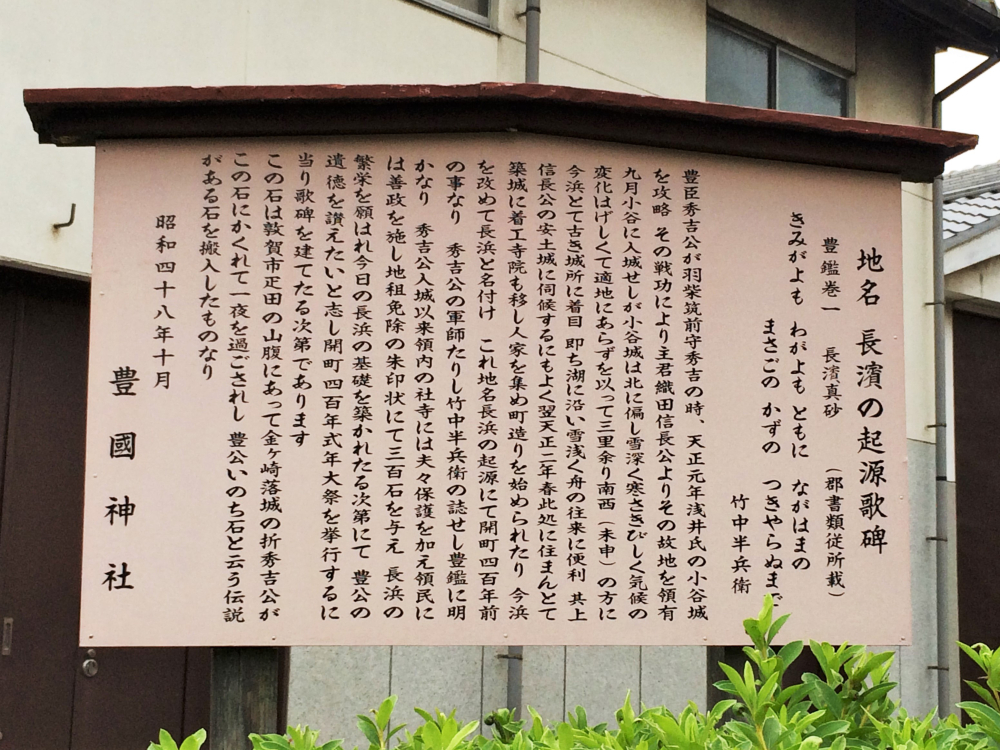 地名 長濱の起源歌碑
豊鑑巻一 長濱真砂 （郡書類従所載）
きみがよも わがよもともに ながはまの
まさごの かずの つきやらぬまで
竹中半兵衛
豊臣秀吉公が羽柴筑前守秀吉の時、天正元年浅井氏の小谷城
を攻略 その戦功により主君織田信長公よりその故地を領有
九月小谷に入城せしが小谷城は北に偏し雪深く寒さきびしく気候の
変化はげしくて適地にあらずを以って三里余り南西（未申）の方に
今浜とて古き城所に着目 即ち湖に沿い雪浅く舟の往来に便利 其上
信長公の安土城に伺候するにもよく翌天正二年春此処に住まんとて
築城に着工寺院も移し人家を集め町造りを始められたり 今浜
を改めて長浜と名付け これ地名長浜の起源にて開町四百年前
の事なり 秀吉公の軍師たりし竹中半兵衛の誌せし豊鑑に明
かなり 秀吉公入城以来領内の社寺には夫々保護を加え領民に
は善政を施し地租免除の朱印状にて三百石を与え 長浜の
繁栄を願はれ今日の長浜の基礎を築かれたる次第にて 豊公の
遺徳を讃えたいと志し開町四百年式年大祭を挙行するに
当り歌碑を建てたる次第であります
この石は敦賀市疋田の山腹にあって金ヶ崎落城の折秀吉公が
この石にかくれて一夜を過ごされし 豊公いのち石と云う伝説
がある石を搬入したものなり
昭和四十八年十月
豊國神社